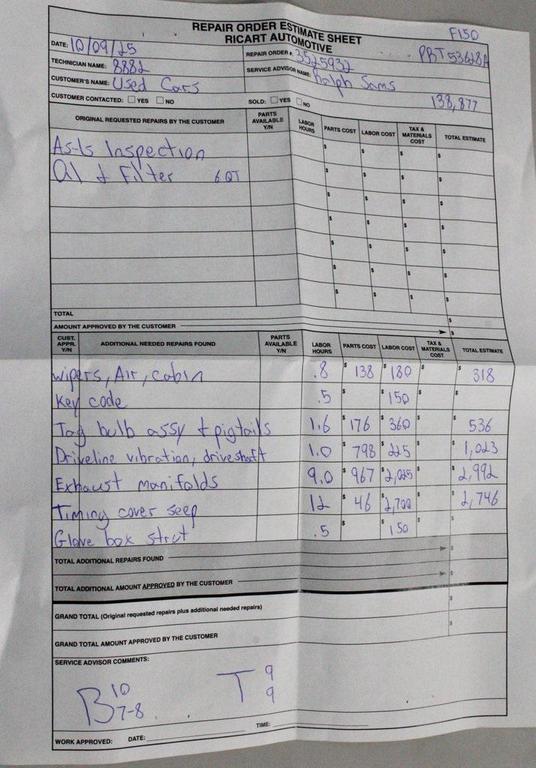 REPAIR ORDER ESTIMATE SHEET
RICART AUTOMOTIVE
F150
DATE: 10/09/25
REPAIR ORDER #: 3525932
PRT53628A
TECHNICIAN NAME: 8882
SERVICE ADVISOR NAME: Ralph Sams
CUSTOMER'S NAME: Used Cars
138,877
CUSTOMER CONTACTED: ☐ YES ☐ NO SOLD: ☐ YES ☐ NO
ORIGINAL REQUESTED REPAIRS BY THE CUSTOMER PARTS AVAILABLE Y/N LABOR HOURS PARTS COST LABOR COST TAX & MATERIALS COST TOTAL ESTIMATE
As-Is Inspection $ $ $ $
Oil & Filter 6 QT $ $ $ $
TOTAL $
AMOUNT APPROVED BY THE CUSTOMER $
CUST. APPR. Y/N ADDITIONAL NEEDED REPAIRS FOUND PARTS AVAILABLE Y/N LABOR HOURS PARTS COST LABOR COST TAX & MATERIALS COST TOTAL ESTIMATE
wipers, Air, cabin .8 $ 138 $ 180 $ $ 318
Key code .5 $ $ 150 $ $
Tag bulb assy + pigtails 1.6 $ 176 $ 360 $ $ 536
Driveline vibration, driveshaft 1.0 $ 798 $ 225 $ $ 1,023
Exhaust manifolds 9.0 $ 967 $ 2,025 $ $ 2,992
Timing cover seep 12 $ 46 $ 2,700 $ $ 2,746
Glove box strut .5 $ $ 150 $ $
TOTAL ADDITIONAL REPAIRS FOUND $
TOTAL ADDITIONAL AMOUNT APPROVED BY THE CUSTOMER $
GRAND TOTAL (Original requested repairs plus additional needed repairs) $
GRAND TOTAL AMOUNT APPROVED BY THE CUSTOMER $
SERVICE ADVISOR COMMENTS:
B 10 7-8 T 9 9
WORK APPROVED: DATE: TIME: